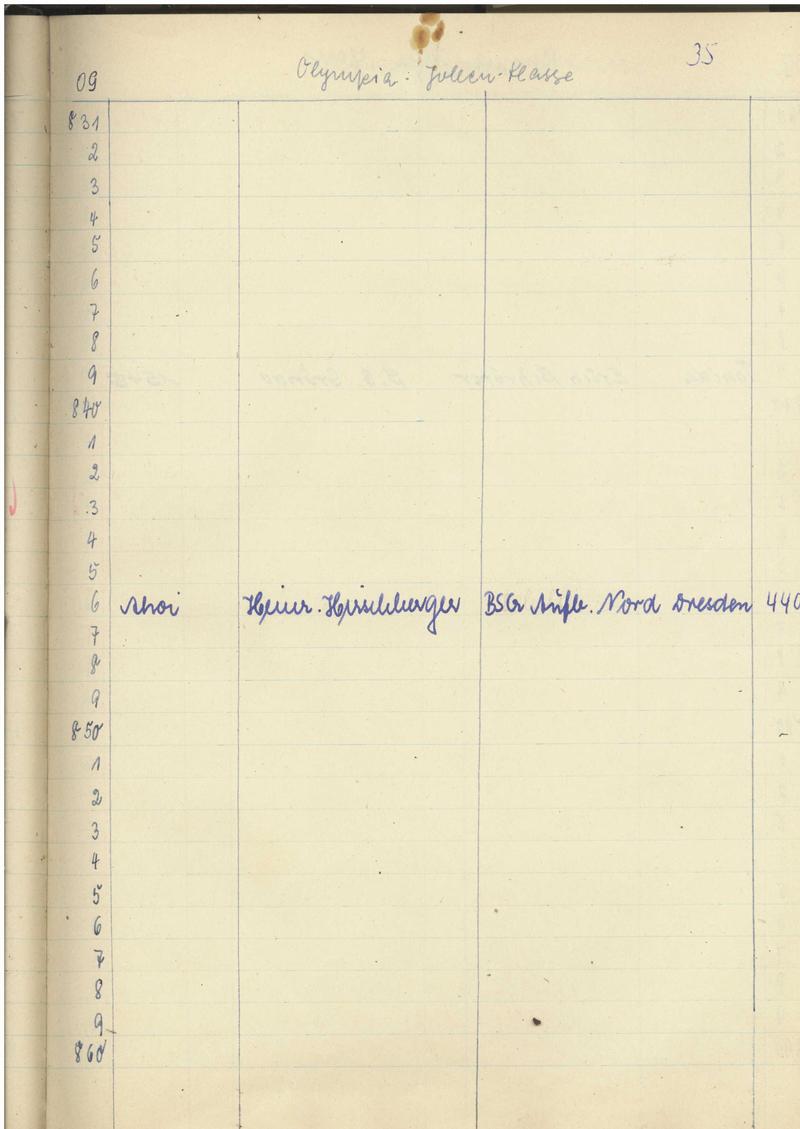 35
09 Olympia-Jollen-Klasse
831
2
3
4
5
6
7
8
9
840
1
2
3
4
5
6 Ahoi Heinr. Hirschberger BSG Aufb. Nord Dresden 440
7
8
9
850
1
2
3
4
5
6
7
8
9
860